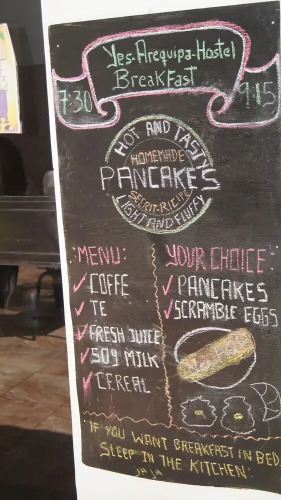 Yes-Arequipa-Hostel
BreakFast
7:30
9:15
HOT AND TASTY
HOMEMADE
PANCAKES
SECRIT-RICIPE
LIGHT AND FLUFFY
MENU:
COFFE
TE
FRESH JUICE
SOY MILK
CEREAL
YOUR CHOICE
PANCAKES
SCRAMBLE EGGS
"IF YOU WANT BREAKFAST IN BED,
SLEEP IN THE KITCHEN"
JA JA